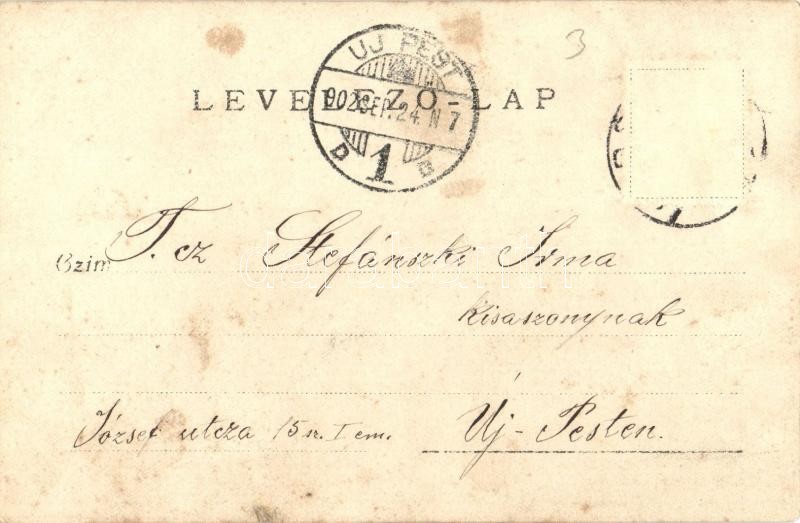 3
UJ PEST
LEVELEZŐ-LAP
902 SEP. 24. N 7
D 1 B
Czim T. cz Stefánszki Irma
kisaszonynak
József utcza 15 sz. I em. Új-Pesten.